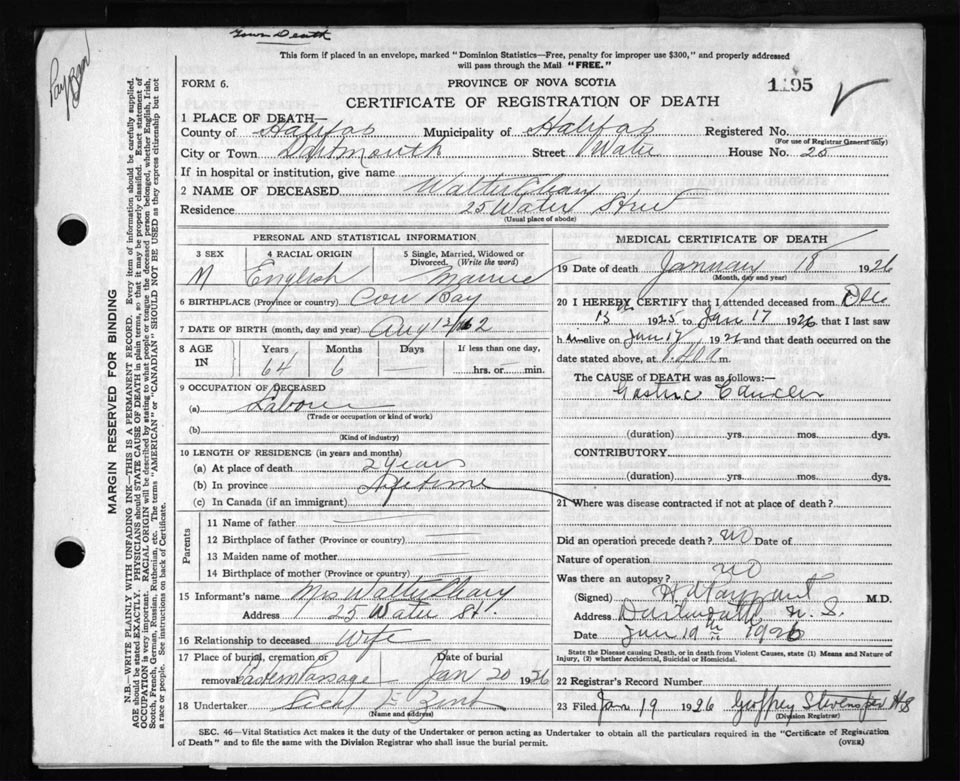 Town Death
This form if placed in an envelope, marked "Dominion Statistics—Free, penalty for improper use $300," and properly addressed
will pass through the Mail "FREE."
FORM 6.
PROVINCE OF NOVA SCOTIA
1195
CERTIFICATE OF REGISTRATION OF DEATH
1 PLACE OF DEATH—
County of Halifax Municipality of Halifax Registered No.
(For use of Registrar General only)
City or Town Dartmouth Street Water House No. 25
If in hospital or institution, give name
2 NAME OF DECEASED Walter Cleary
Residence 25 Water Street
(Usual place of abode)
PERSONAL AND STATISTICAL INFORMATION
3 SEX 4 RACIAL ORIGIN 5 Single, Married, Widowed or Divorced. (Write the word)
M English Married
6 BIRTHPLACE (Province or country) Cow Bay
7 DATE OF BIRTH (month, day and year) Aug 12
8 AGE IN Years Months Days If less than one day,
64 6 — hrs. or min.
9 OCCUPATION OF DECEASED
(a) Laborer
(Trade or occupation or kind of work)
(b)
(Kind of industry)
10 LENGTH OF RESIDENCE (in years and months)
(a) At place of death 2 years
(b) In province Lifetime
(c) In Canada (if an immigrant)
Parents
11 Name of father
12 Birthplace of father (Province or country)
13 Maiden name of mother
14 Birthplace of mother (Province or country)
15 Informant's name Mrs Walter Cleary
Address 25 Water St.
16 Relationship to deceased Wife
17 Place of burial, cremation or removal Eastern Passage Date of burial Jan 20 1926
18 Undertaker
(Name and address)
MEDICAL CERTIFICATE OF DEATH
19 Date of death January 18 1926
(Month, day and year)
20 I HEREBY CERTIFY that I attended deceased from Dec
13th 1925 to Jan 17 1926 that I last saw
him alive on Jan 17 1926 and that death occurred on the
date stated above, at m.
The CAUSE of DEATH was as follows:—
Gastric Cancer
(duration) yrs. mos. dys.
CONTRIBUTORY
(duration) yrs. mos. dys.
21 Where was disease contracted if not at place of death?
Did an operation precede death? no Date of
Nature of operation
Was there an autopsy? no
(Signed) M.D.
Address Dartmouth N.S.
Date Jan 19th 1926
State the Disease causing Death, or in death from Violent Causes, state (1) Means and Nature of
Injury, (2) whether Accidental, Suicidal or Homicidal.
22 Registrar's Record Number
23 Filed Jan 19 1926 Geoffrey
(Division Registrar)
SEC. 46—Vital Statistics Act makes it the duty of the Undertaker or person acting as Undertaker to obtain all the particulars required in the "Certificate of Registration
of Death" and to file the same with the Division Registrar who shall issue the burial permit.
(OVER)
MARGIN RESERVED FOR BINDING
N.B.—WRITE PLAINLY WITH UNFADING INK—THIS IS A PERMANENT RECORD. Every item of information should be carefully supplied.
AGE should be stated EXACTLY. PHYSICIANS should STATE CAUSE OF DEATH in plain terms, so that it may be properly classified. Exact statement of
OCCUPATION is very important. RACIAL ORIGIN will be described by stating to what people or tongue the deceased person belonged, whether English, Irish,
Scotch, French, German, Russian, Ruthenian, etc. The terms "AMERICAN" or "CANADIAN" SHOULD NOT BE USED as they express citizenship but not
a race or people. See instructions on back of Certificate.